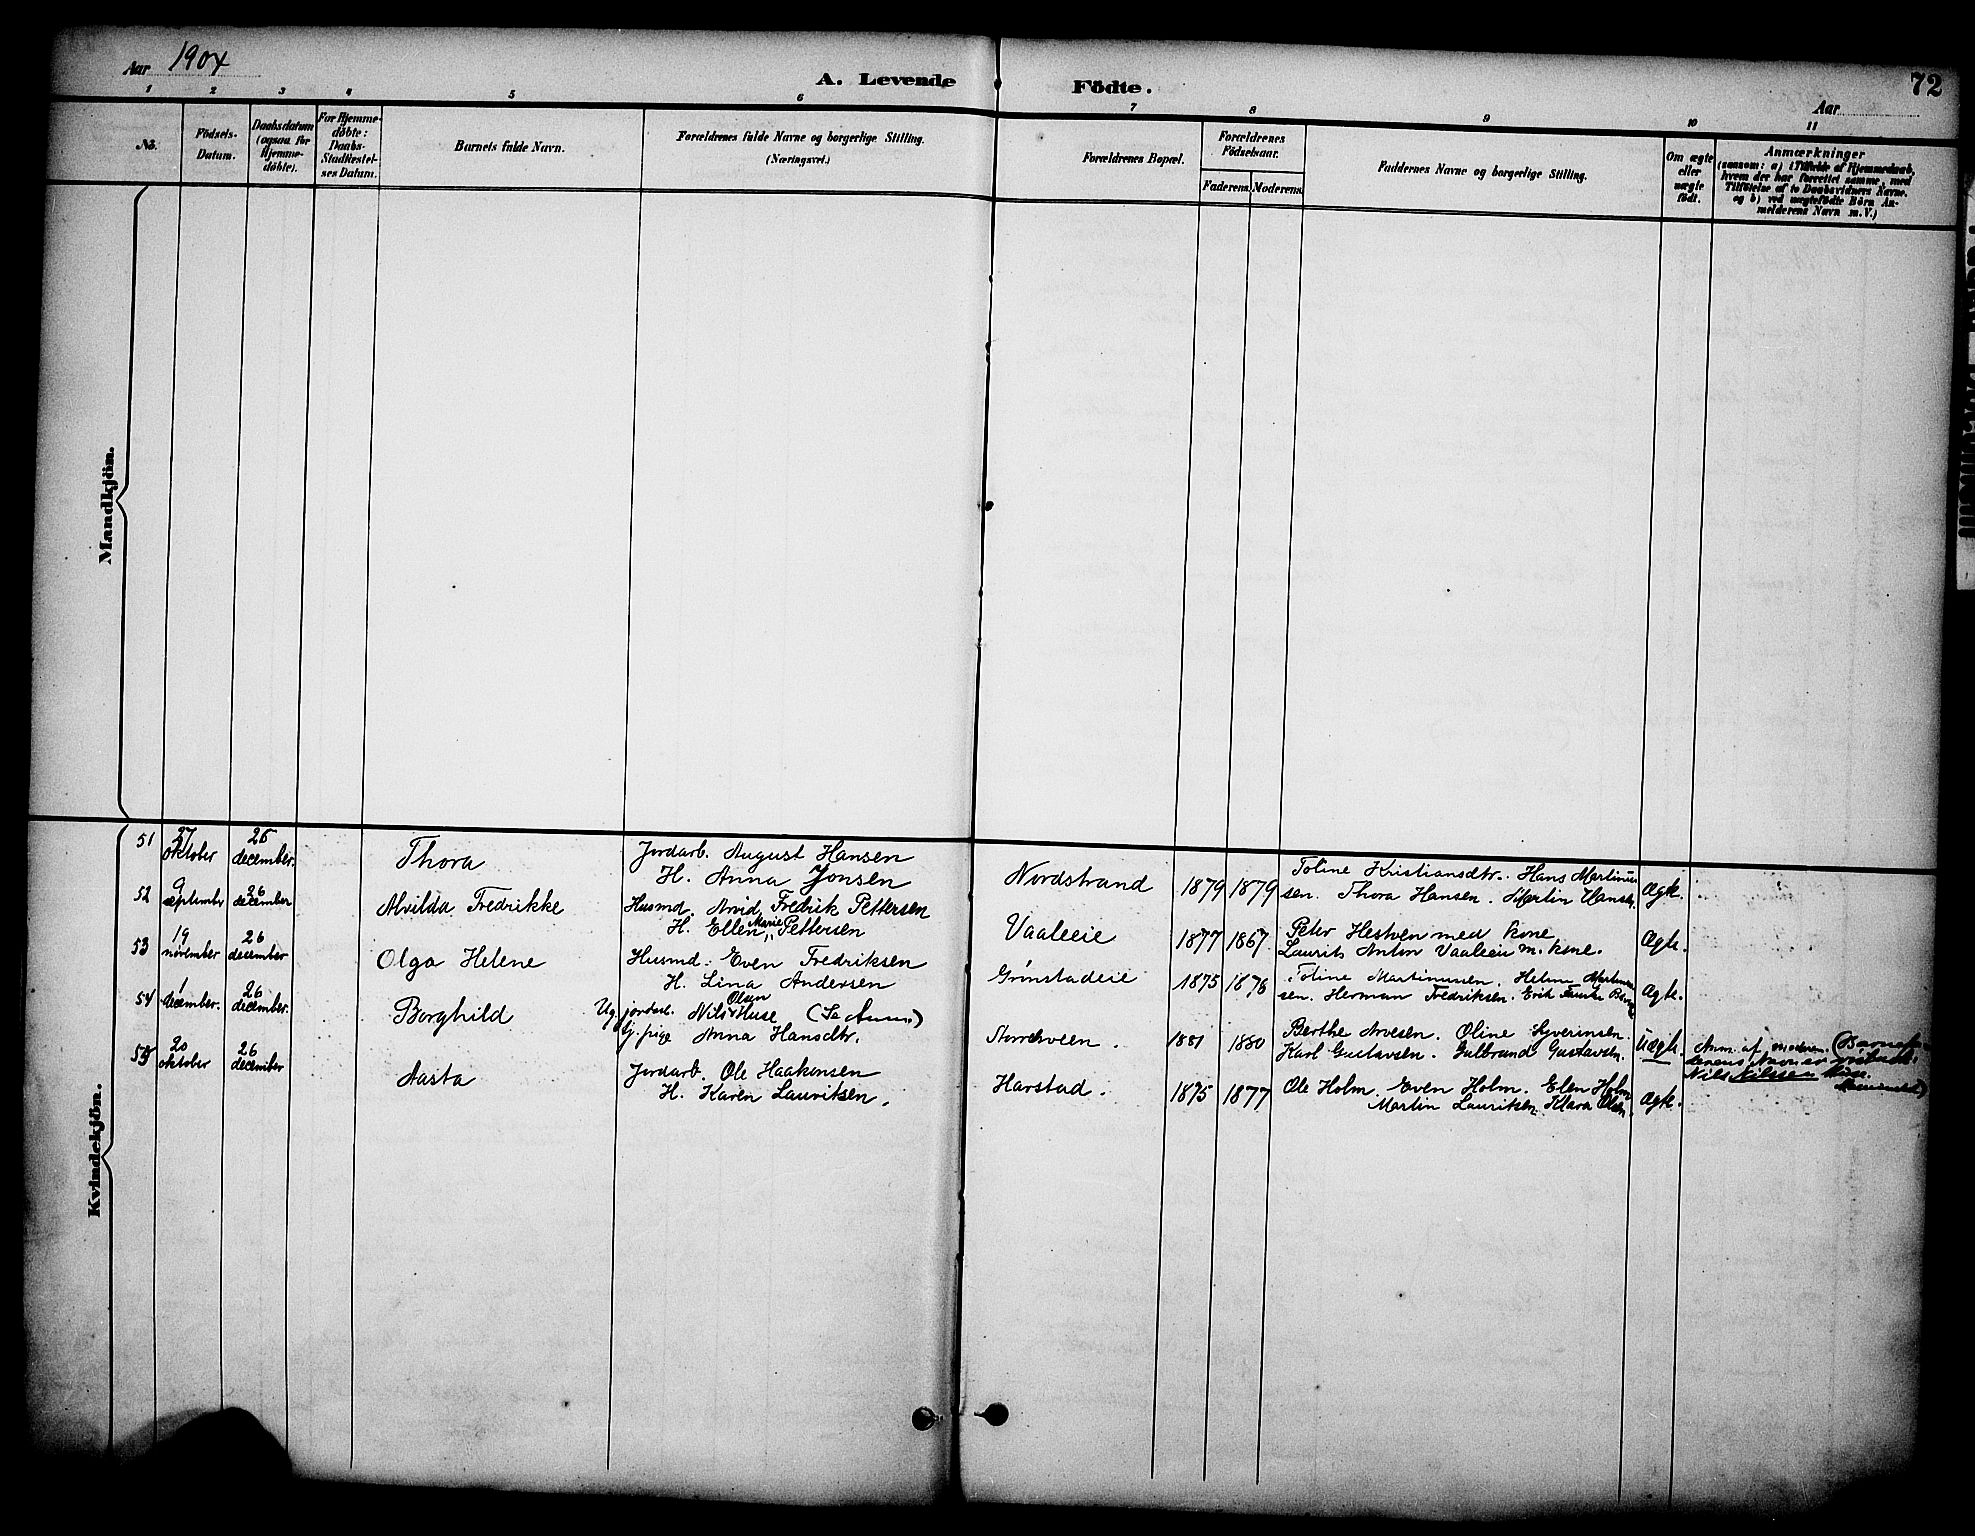 Aar 1904
A. Levende Födte.
72
Aar
1 2 3 4 5 6 7 8 9 10 11
No.
Födsels-Datum.
Daabsdatum (ogsaa for Hjemme-döbte).
For Hjemme-döbte: Daabs-Stadfæstel-ses Datum.
Barnets fulde Navn.
Forældrenes fulde Navne og borgerlige Stilling.
(Næringsvei.)
Forældrenes Bopæl.
Forældrenes Födselsaar.
Faderens. Moderens.
Faddernes Navne og borgerlige Stilling.
Om ægte eller uægte födt.
Anmærkninger
(saasom: a) i Tilfælde af Hjemmedaab,
hvem der har forrettet samme, med
Tilföielse af to Daabsvidners Navne,
og b) ved uægtefödte Börn An-
melderens Navn m. V.)
Mandkjön.
Kvindekjön.
51 27 oktober 26 december. Thora Jordarb. August Hansen
H. Anna Jonsen Nordstrand 1879 1879 Toline Kristiansdtr. Hans Martinius
sen. Thora Hansen. Martin Hansen. Ægte.
52 9 september 26 december Alvilda Fredrikke Husmd. Arvid Fredrik Pettersen
H. Ellen Marie Pettersen Vaaleeie 1877 1867. Peter Hestven med kone
Laurits Anton Vaaleeie m. kone. Ægte.
53 19 november 26 december Olga Helene Husmd. Even Fredriksen
H. Lina Andersen Grønstadeie 1875 1876 Toline Martinussen. Helene Martinus
sen. Herman Fredriksen. Erik Ægte.
54 1 december. 26 december. Borghild Ug. jordarb. Nils Olsen Huse
Ug. pige Anna Hansdtr. 1881 1880 Berthe Arvesen. Oline Syverinsen.
Karl Gustavsen. Gulbrand Gustavsen. Uægte. Anm. af moderen. (Barnefa-
Nils Nilssen Huse
55 20 oktober 26 december Aasta Jordarb. Ole Haakensen
H. Karen Lauritsen. Harstad. 1875 1877 Ole Holm. Even Holm. Elen Holm
Martin Lauritsen. Klara Olsen. Ægte.